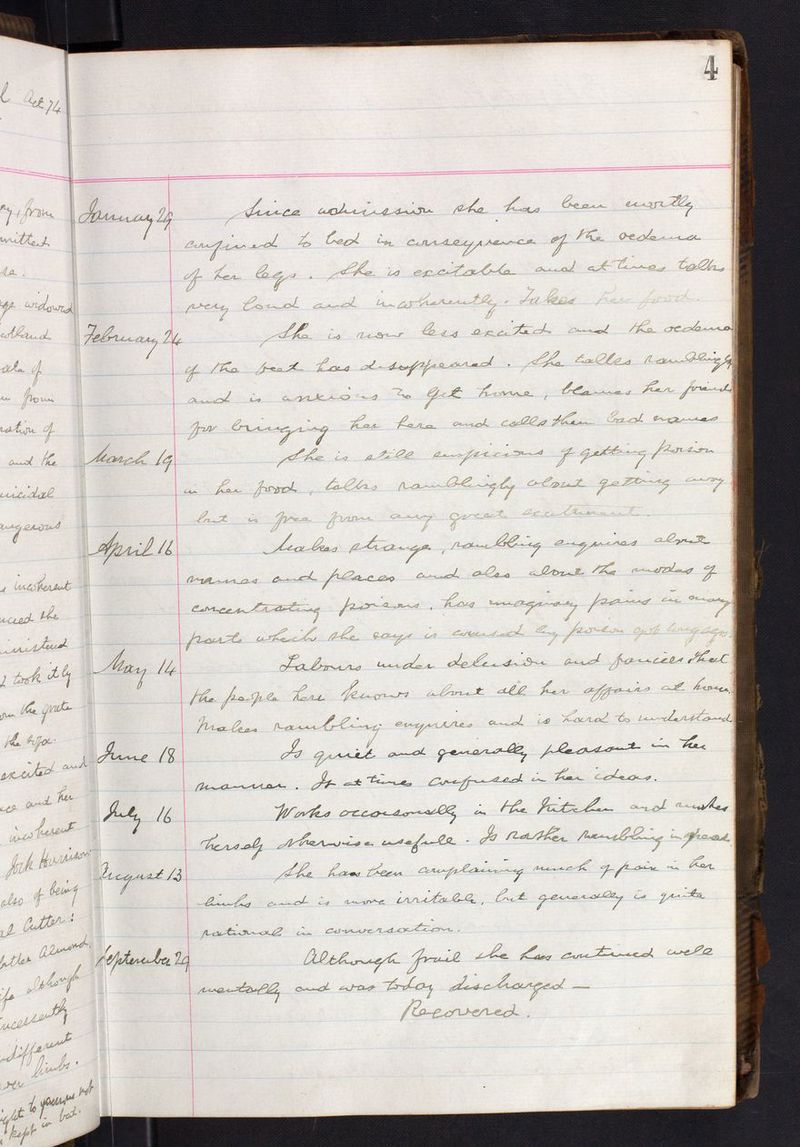 4
January 29 Since admission she has been mostly
confined to bed in consequence of the oedema
of her legs. She is excitable and at times talks
very loud and incoherently. Takes her food.
February 24 She is now less excited and the oedema
of the feet has disappeared. She talks ramblingly
and is anxious to get home, blames her friends
for bringing her here and calls them bad names
March 19 She is still suspicious of getting poison
in her food, talks ramblingly about getting away
but is free from any great excitement.
April 16 Makes strange, rambling enquires about
names and places and also about the modes of
concentrating poisons, has imaginary pains in many
parts which she says is caused by poison got
May 14 Labours under delusion and fancies that
the people here knows about all her affairs at home.
Makes rambling enquires and is hard to understand
June 18 Is quiet and generally pleasant in her
manner. Is at times confused in her ideas.
July 16 Works occasionally in the Kitchen and makes
herself otherwise usefull. Is rather rambling in
August 13 She has been complaining much of pain in her
limbs and is more irritable, but generally is quite
rational in conversation.
September 29 Although frail she has continued well
mentally and was today discharged —
Recovered.
Act 74
from
widowed
of
from
of
and the
suicidal
dangerous
incoherent
the
took it by
the grate
the
excited and
and her
incoherent
also of being
Cutter:
Almond.
although
incessantly
indifferent
limbs.
kept in bed.